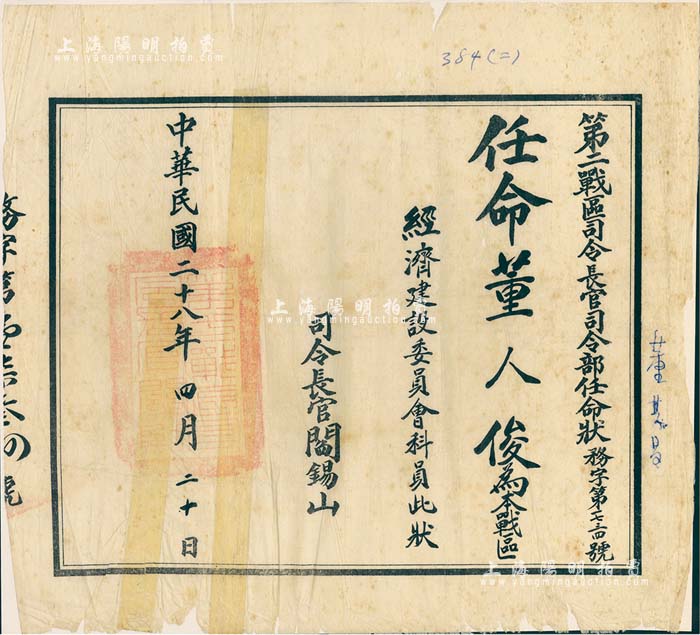 上海陽明拍賣
www.yangmingauction.com
384(二)
第二戰區司令長官司令部任命狀 務字第 號
任命董人俊為本戰區
經濟建設委員會科員此狀
司令長官閻錫山
中華民國二十八年四月二十日
上海陽明拍賣
www.yangmingauction.com
上海陽明拍賣
www.yangmingauction.com